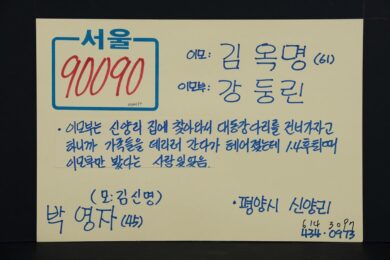 서울
90090
이모: 김옥명 (61)
이모부: 강둥린
· 이모부는 신양리 집에 찾아와서 대동강다리를 건너가자고
하니까 가족들을 데리러 간다가 헤어졌는데 1.4후퇴때
이모부만 봤다는 사람 있었음
(모: 김신명)
박영자 (45)
· 평양시 신양리
614 3097
434-0973